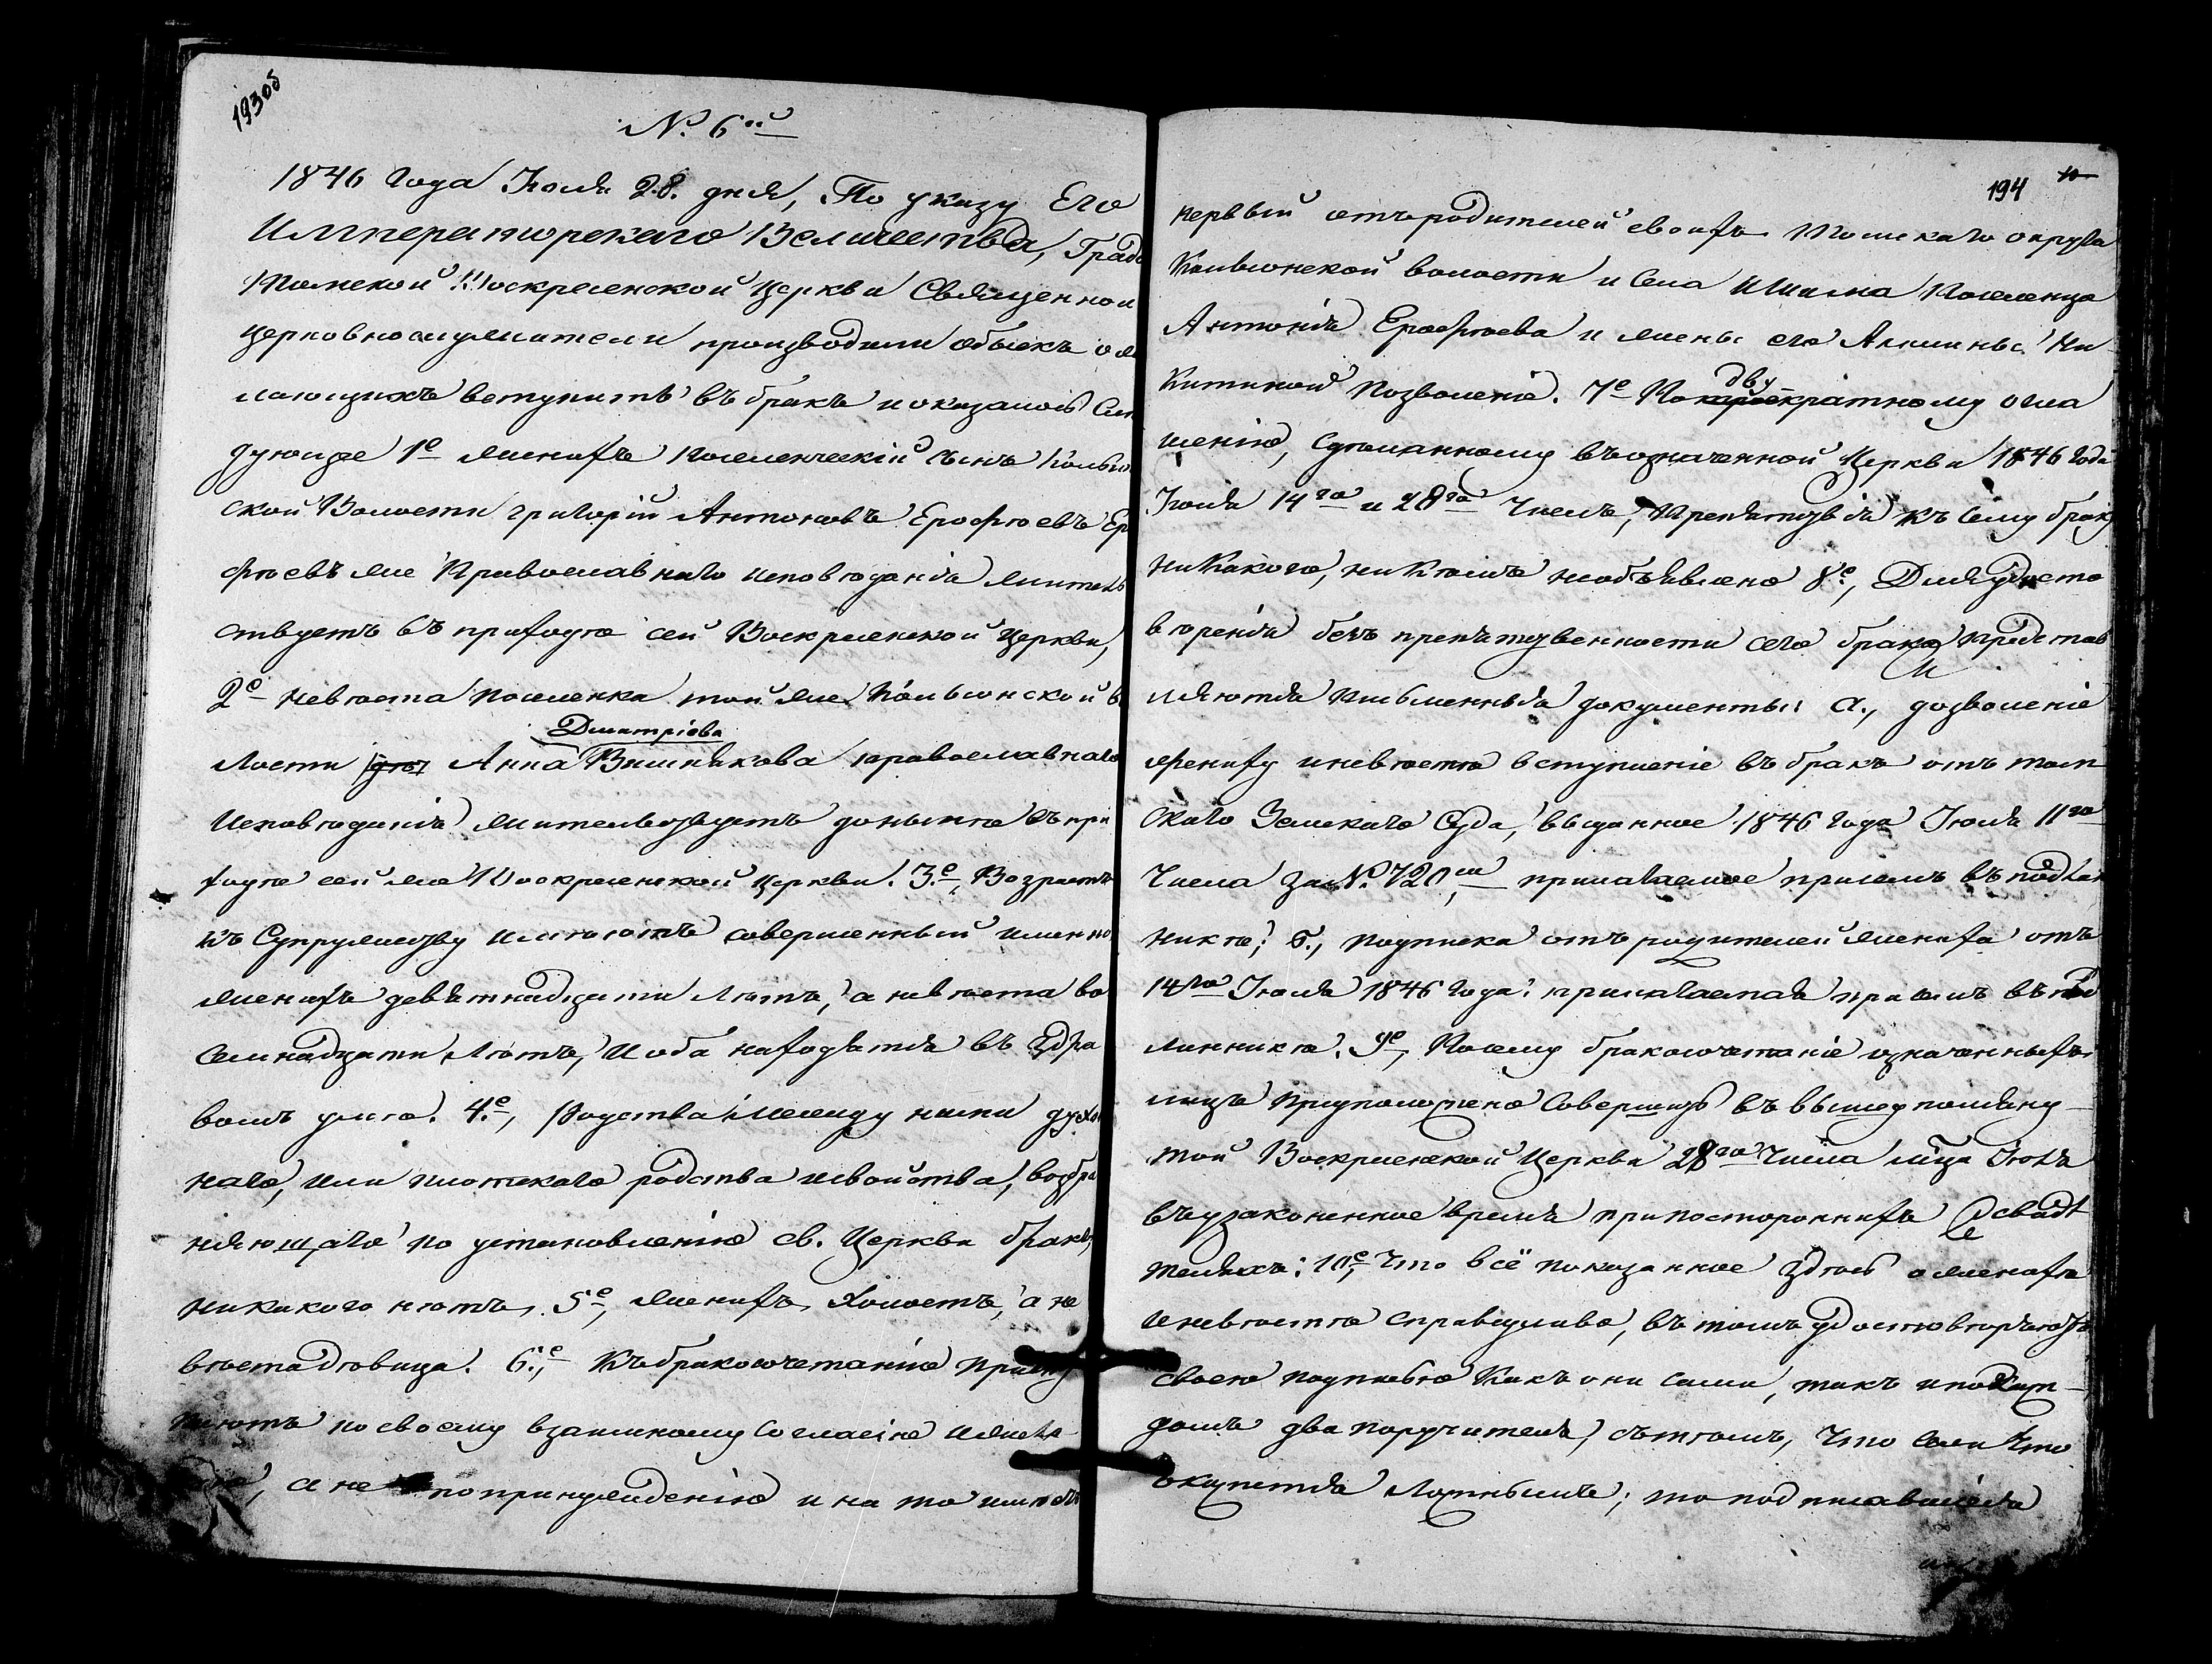 193об
№ 6ой
1846 года Іюля 28. дня, По указу Его
Императорскаго Величества, Градо
Томской Воскресенской церкви Священно и
церковнослужители производили обыскъ о же
лающихъ вступить въ бракъ и оказалось Слѣ
дующее 1е женихъ Поселенческій сынъ
ской Волости Григорій Антоновъ Ерофѣевъ Еро
фѣевъ же Православнаго исповѣданія житель
ствуетъ въ приходѣ сей Воскресенской церкви,
2е Невѣста поселенка той же во
лости Анна Дмитріева Вишнякова православнаго
Исповѣданія жительствуетъ донынѣ въ при
ходѣ сей же Воскресенской церкви. 3е, Возрастъ
къ Супружеству имѣютъ совершенный именно
женихъ девятнадцати лѣтъ, а невѣста во
семнадцати лѣтъ, и оба находятся въ здра
вомъ умѣ. 4е, Родства между ними духов
наго, или плотскаго родства и свойства, возбра
няющаго по установленію св. Церкви бракъ,
никакого нѣтъ, 5е, женихъ Холостъ, а не
вѣста дѣвица. 6е, Къ бракосочетанію присту
паютъ по своему взаимному Согласію и жела
, а не по принужденію и на то имѣетъ
194
10
первый отъ родителей своихъ Томскаго округа
волости и Села Ишима Поселенца
Антонія Ерофѣева и жены его Ни
китиной Позволеніе. 7е По двукратному огла
шенію, сдѣланному въ означенной Церкви 1846 года
Іюля 14го и 28го Числъ, Препятствія къ сему браку
никакого, никѣмъ необъявлено 8е, Для удосто
вѣренія безъ препятственности сего брака представ
ляются письменныя документы: а., дозволеніе
жениху и невѣстѣ вступленіе въ бракъ отъ том
скаго Земскаго Суда, выданное 1846 года Іюля 11го
Числа за № 720м прилагаемое при семъ въ подлин
никѣ; б., подписка отъ родителей жениха отъ
14го Іюля 1846 года: прилагаемая при семъ въ под
линникѣ. 9е, Посему бракосочетаніе означенныхъ
лицъ предположено совершить въ вышеупомяну
той Воскресенской Церкви 28го Числа мца Іюля
въ узаконенное время при постороннихъ свидѣ
теляхъ: 10е, Что всё показанное здѣсь о женихѣ
и невѣстѣ справедливо, въ томъ удостовѣряютъ
своею подписью Какъ они сами, такъ и по каж
домъ два поручителя, съ тѣмъ, что если что
окажется ложнымъ; то подписавшіеся